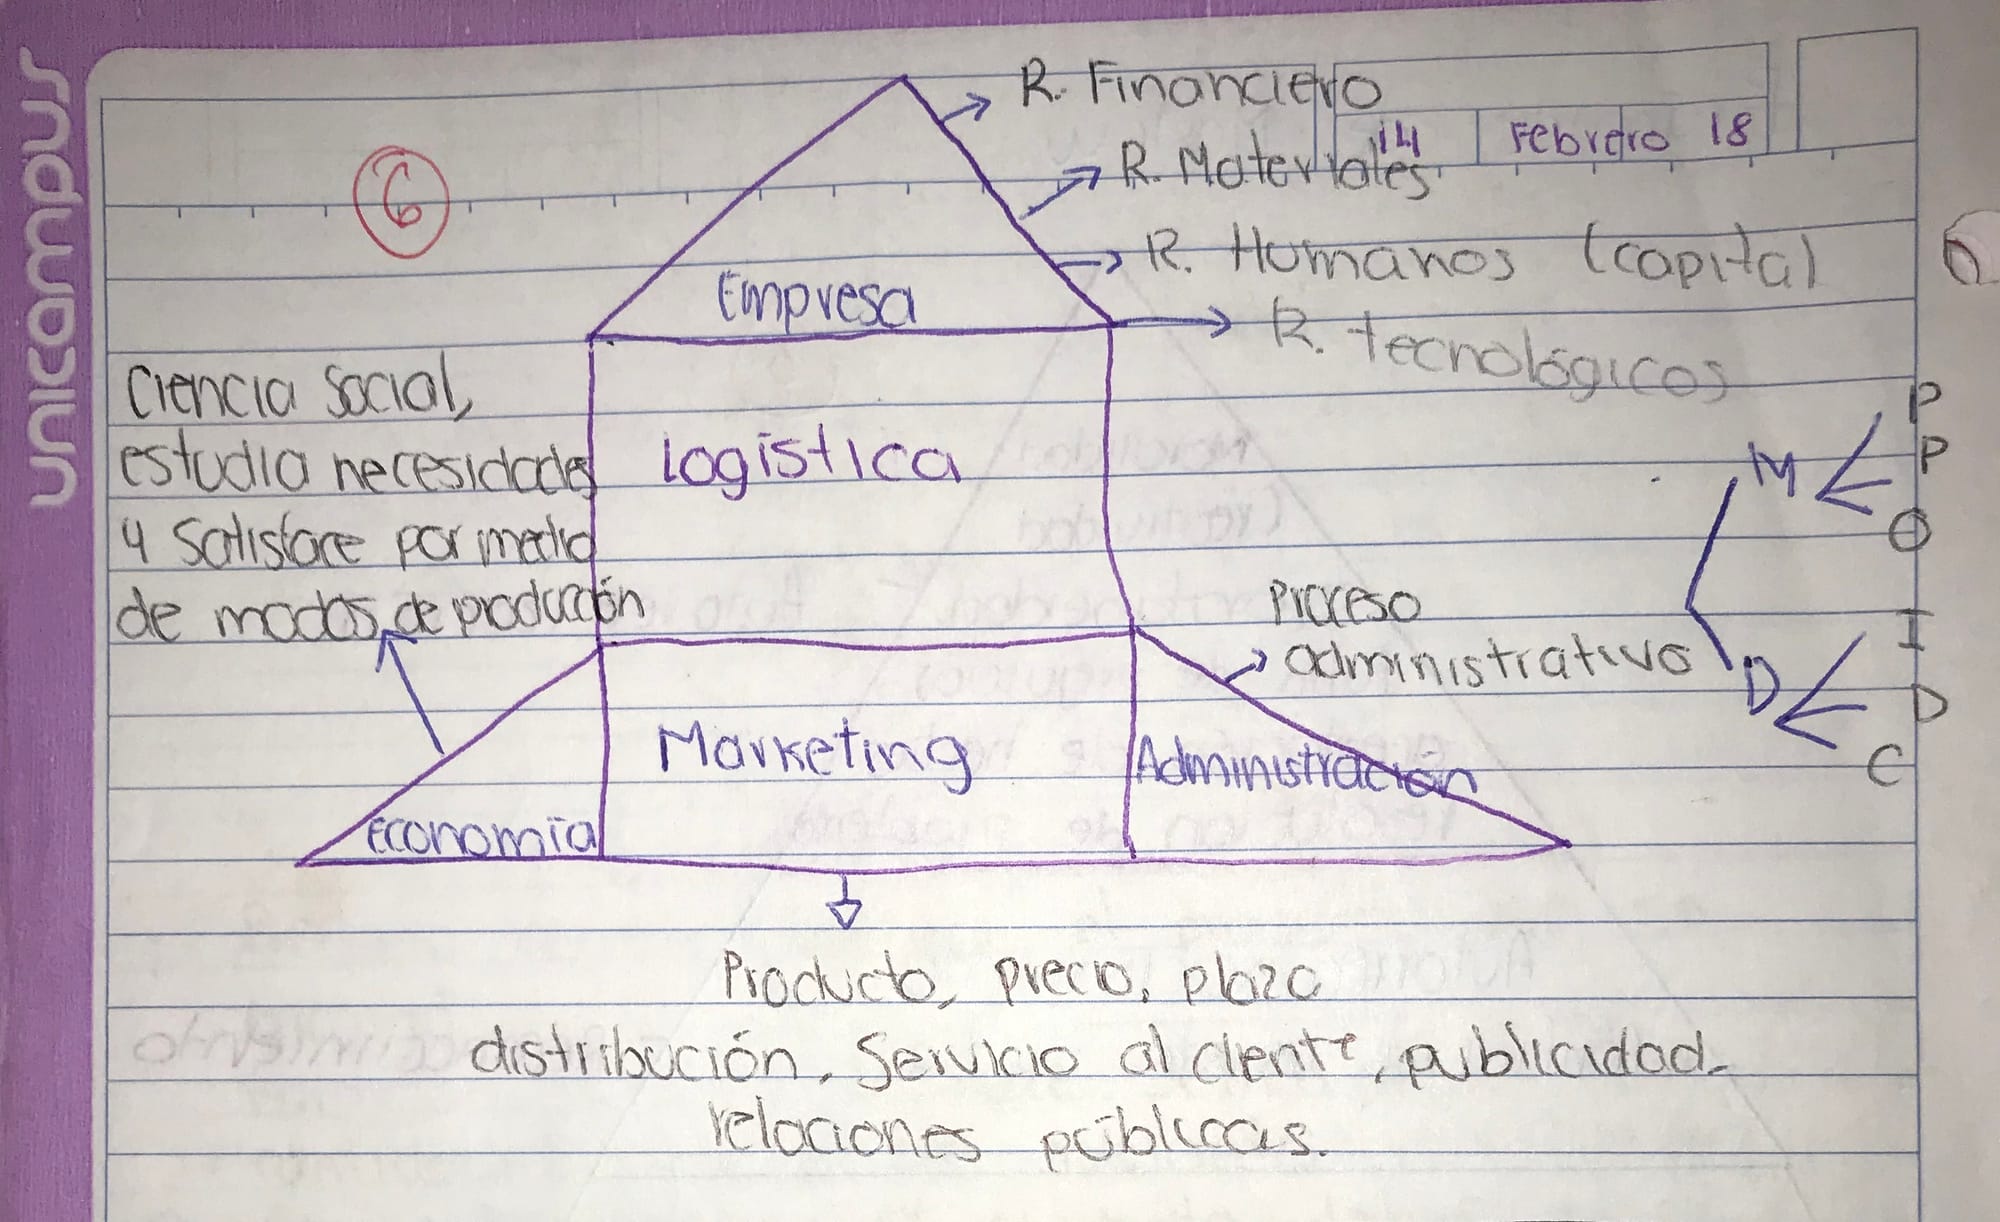 unicampus
R. Financiero
14 Febrero 18
R. Materiales
6
R. Humanos (capital
Empresa
R. tecnológicos
Ciencia Social,
estudia necesidades
y Satisface por medio
de modos de producción
Logística
P
M P
O
Proceso
administrativo
I
D D
C
Marketing
Administración
Economía
Producto, precio, plaza
distribución, Servicio al cliente, publicidad.
relaciones públicas.